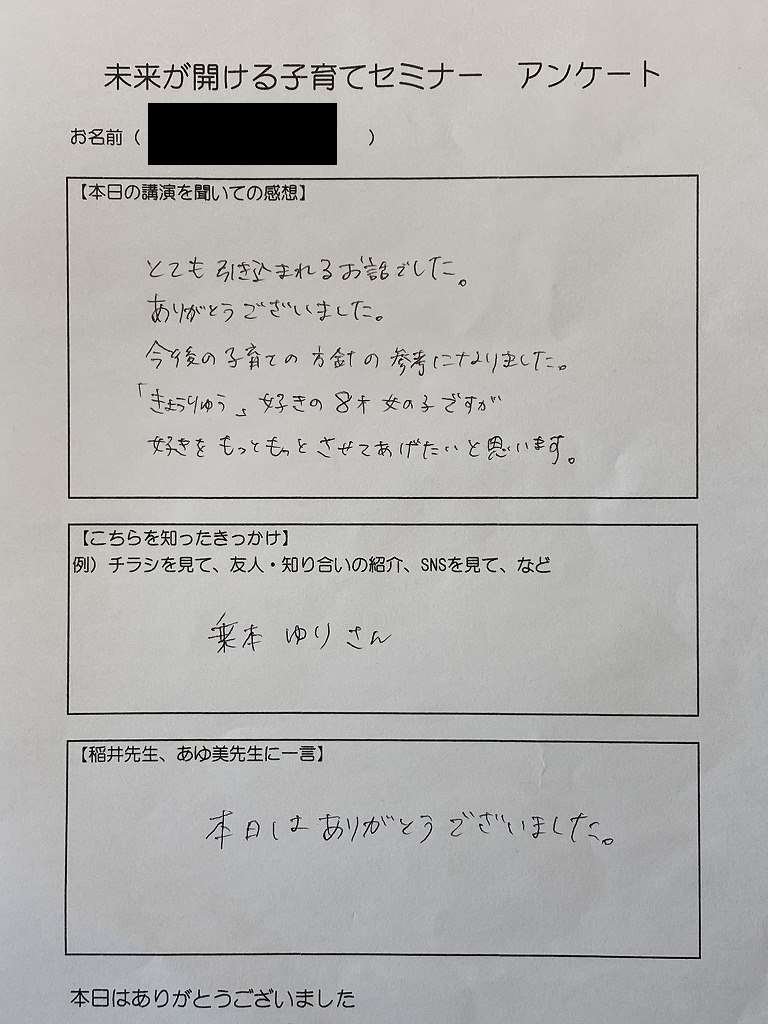 未来が開ける子育てセミナー　アンケート
お名前（　　　　）
【本日の講演を聞いての感想】
とても引き込まれるお話でした。
ありがとうございました。
今後の子育ての方針の参考になりました。
「きょうりゅう」好きの8才女の子ですが
好きをもっともっとさせてあげたいと思います。
【こちらを知ったきっかけ】
例）チラシを見て、友人・知り合いの紹介、SNSを見て、など
乗本 ゆりさん
【稲井先生、あゆ美先生に一言】
本日はありがとうございました。
本日はありがとうございました